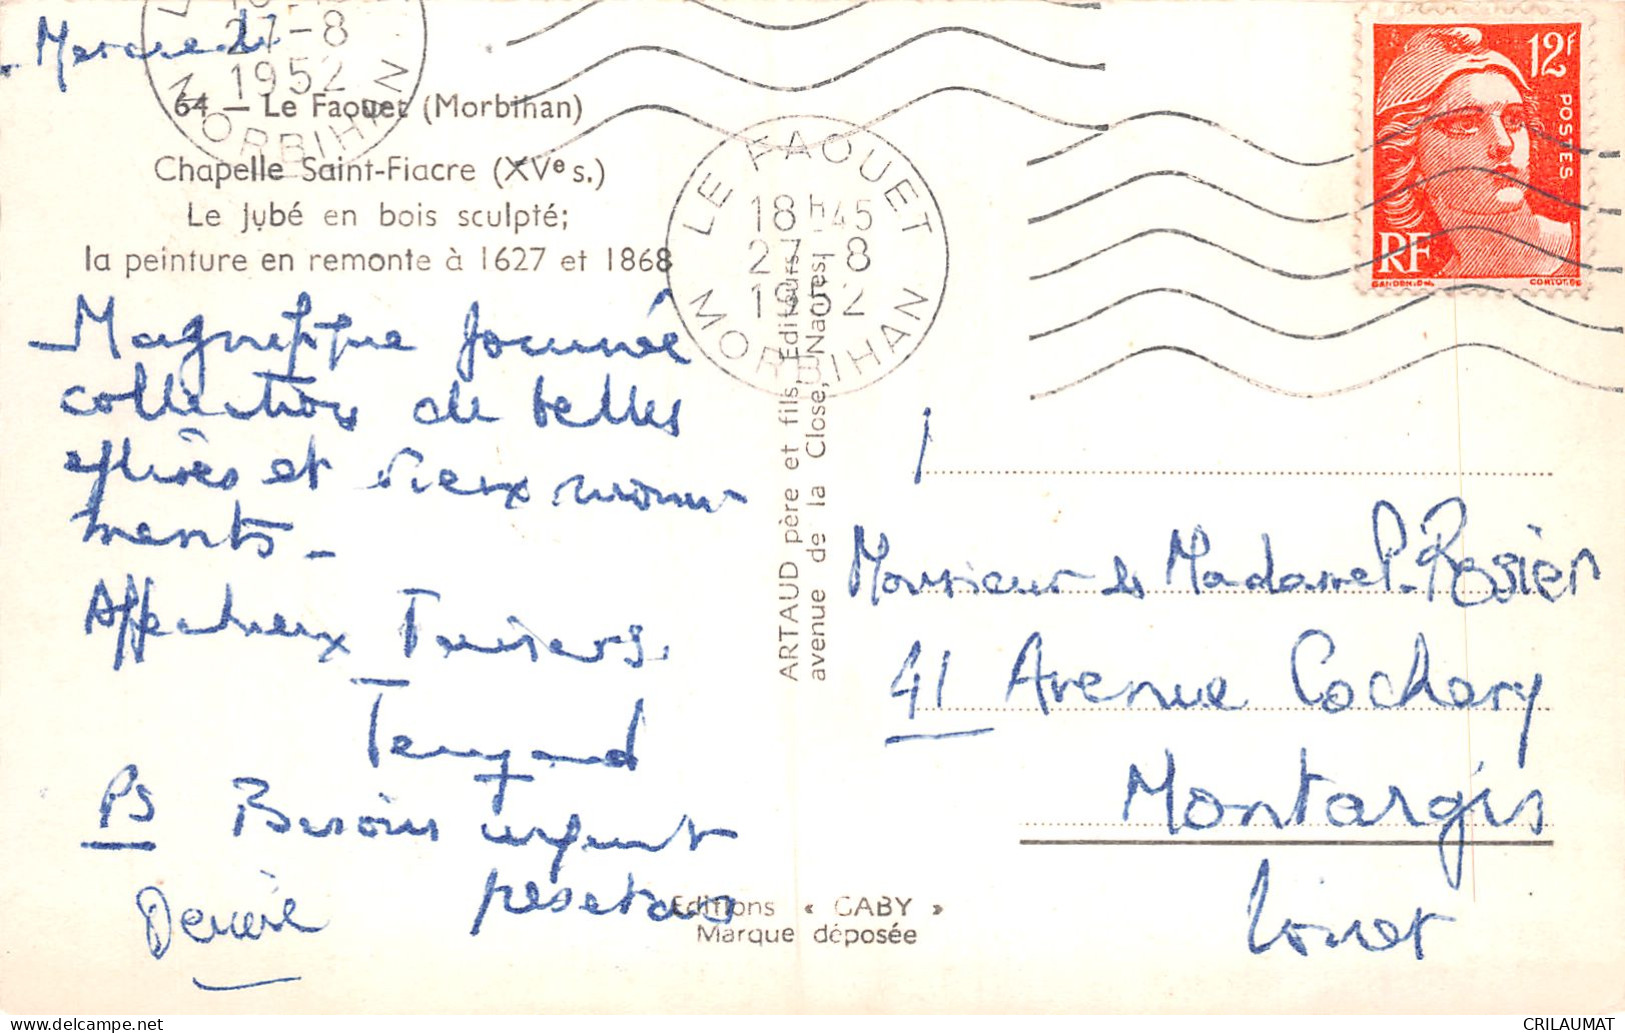 Mercredi
64 — Le Faouet (Morbihan)
Chapelle Saint-Fiacre (XVe s.)
Le Jubé en bois sculpté;
la peinture en remonte à 1627 et 1868
Magnifique journée
collection de belles
églises et vieux monu-
ments –
Affectueux
PS Besoin urgent
pesetas
LE FAOUET
18H45
27-8
1952
MORBIHAN
27-8
1952
MORBIHAN
ARTAUD père et fils, Editeurs
avenue de la Close, Nantes
Editions « GABY »
Marque déposée
12F
POSTES
RF
GANDON.DEL.
CORTOT.SC
Monsieur & Madame P. Rozier
41 Avenue Cochery
Montargis
Loiret
CRILAUMAT